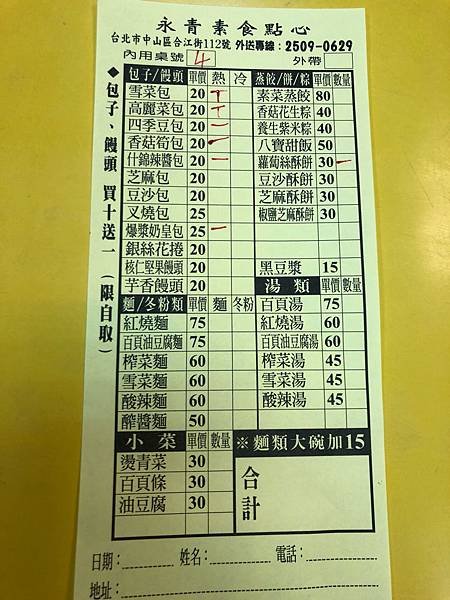 永青素食點心
台北市中山區合江街112號 外送專線：2509-0629
內用桌號 4 外帶
◆包子、饅頭 買十送一 （限自取）
包子/饅頭 單價 熱 冷 蒸餃/餅/粽 單價 數量
雪菜包 20 丅 素菜蒸餃 80
高麗菜包 20 丅 香菇花生粽 40
四季豆包 20 一 養生紫米粽 40
香菇筍包 20 一 八寶甜飯 50
什錦辣醬包 20 一 蘿蔔絲酥餅 30 一
芝麻包 20 豆沙酥餅 30
豆沙包 20 芝麻酥餅 30
叉燒包 25 椒鹽芝麻酥餅 30
爆漿奶皇包 25 一
銀絲花捲 20
核仁堅果饅頭 20 黑豆漿 15
芋香饅頭 20 湯類 單價 數量
麵/冬粉類 單價 麵 冬粉 百頁湯 75
紅燒麵 75 紅燒湯 60
百頁油豆腐麵 75 百頁油豆腐湯 60
榨菜麵 60 榨菜湯 45
雪菜麵 60 雪菜湯 45
酸辣麵 60 酸辣湯 45
醡醬麵 50
小菜 單價 數量 ※麵類大碗加15
燙青菜 30 合計
百頁條 30
油豆腐 30
日期： 姓名： 電話：
地址：